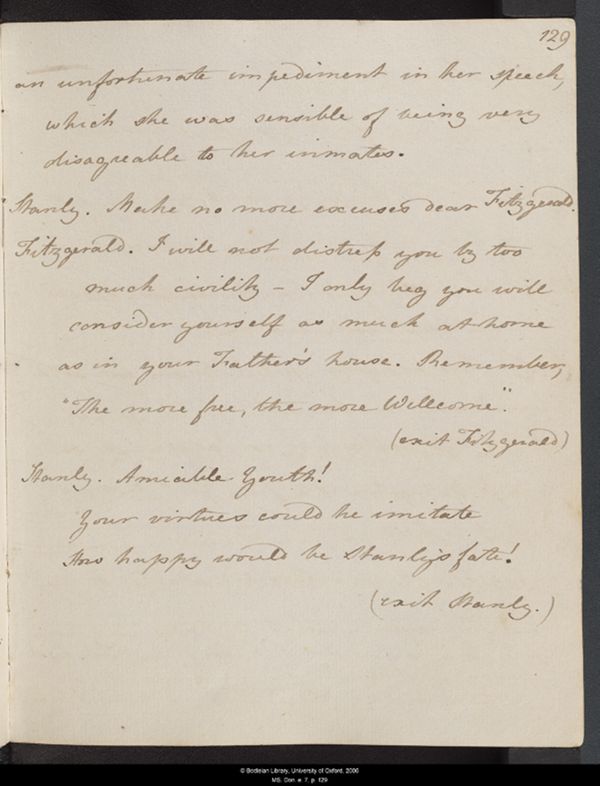 129
an unfortunate impediment in her speech,
which she was sensible of being very
disagreable to her inmates.
Stanly. Make no more excuses dear Fitzgerald.
Fitzgerald. I will not distress you by too
much civility - I only beg you will
consider yourself as much at home
as in your Father's house. Remember,
"The more free, the more Wellcome".
(exit Fitzgerald)
Stanly. Amiable Youth!
Your virtues could he imitate
How happy would be Stanly's fate!
(exit Stanly.)
© Bodleian Library, University of Oxford, 2006
MS. Don. e. 7, p. 129